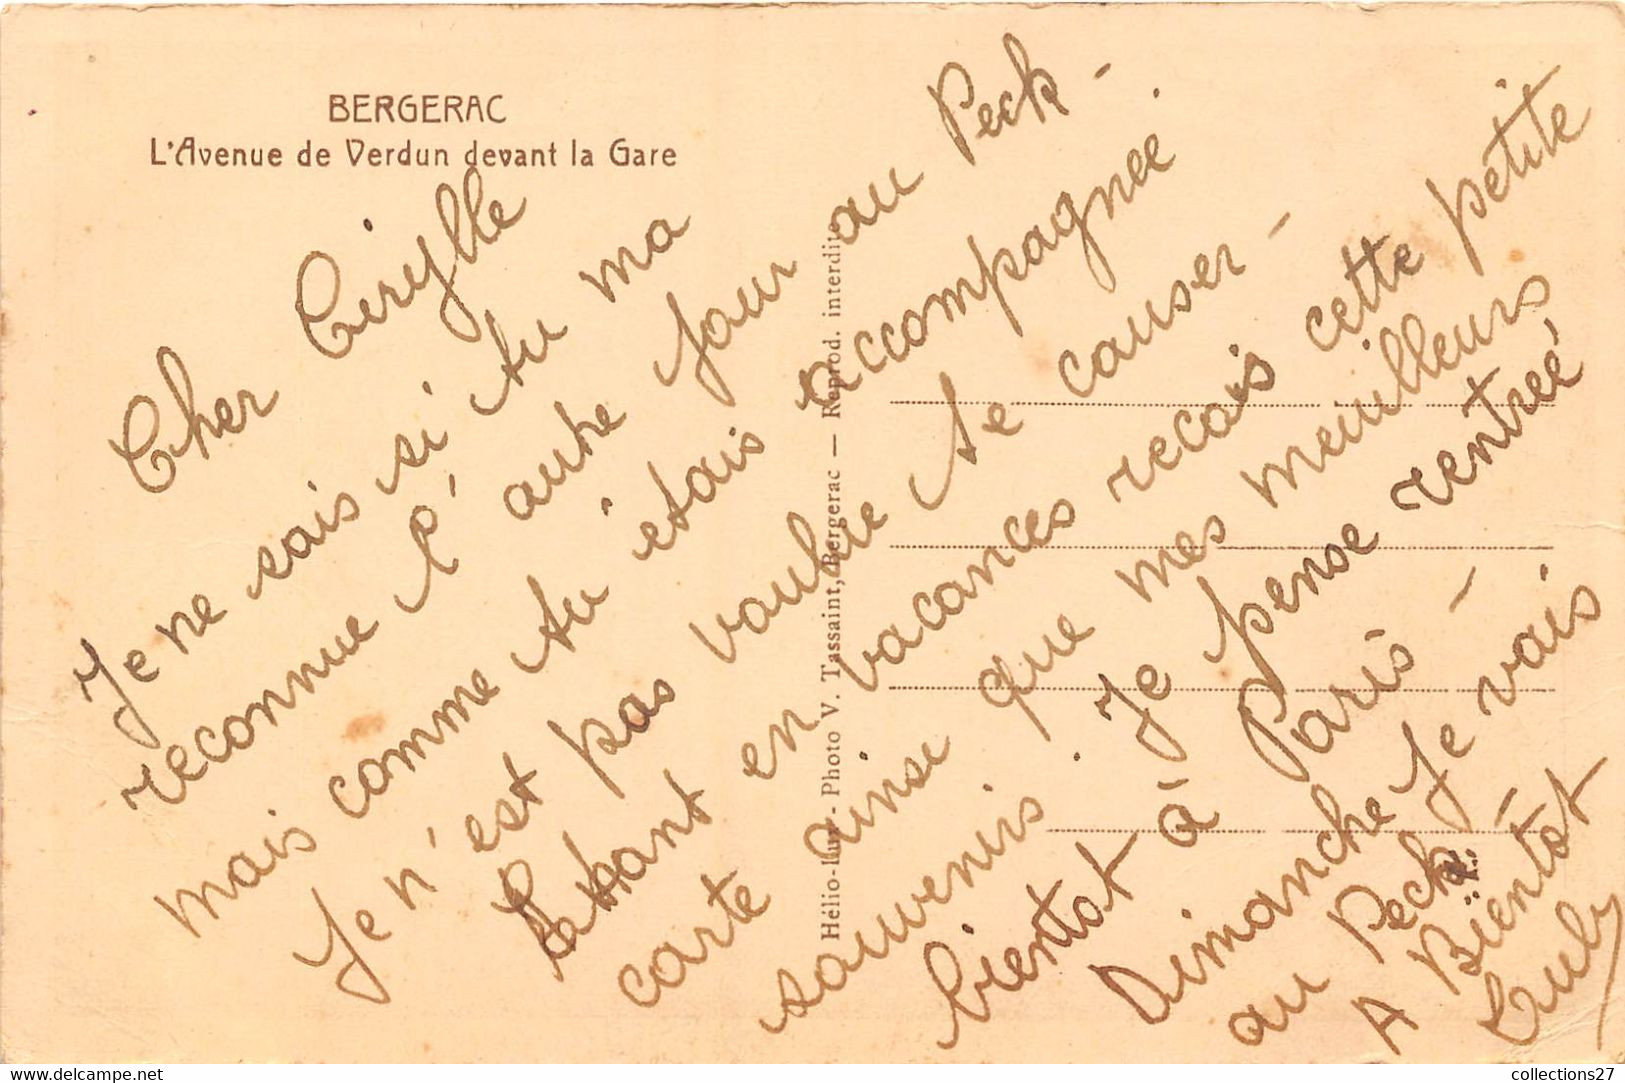 BERGERAC
L'Avenue de Verdun devant la Gare
Hélio-Lux - Photo V. Tassaint, Bergerac — Reprod. interdite
Cher Cirylle
Je ne sais si tu ma
reconnue l'autre jour au Peck -
mais comme tu etais accompagnée
Je n'est pas voulue te causer -
Letant en vacances recois cette petite
carte ainse que mes meuilleurs
souvenirs. Je pense rentrée
bientot à Paris -
Dimanche Je vais
au Peck
A Bientot
collections27